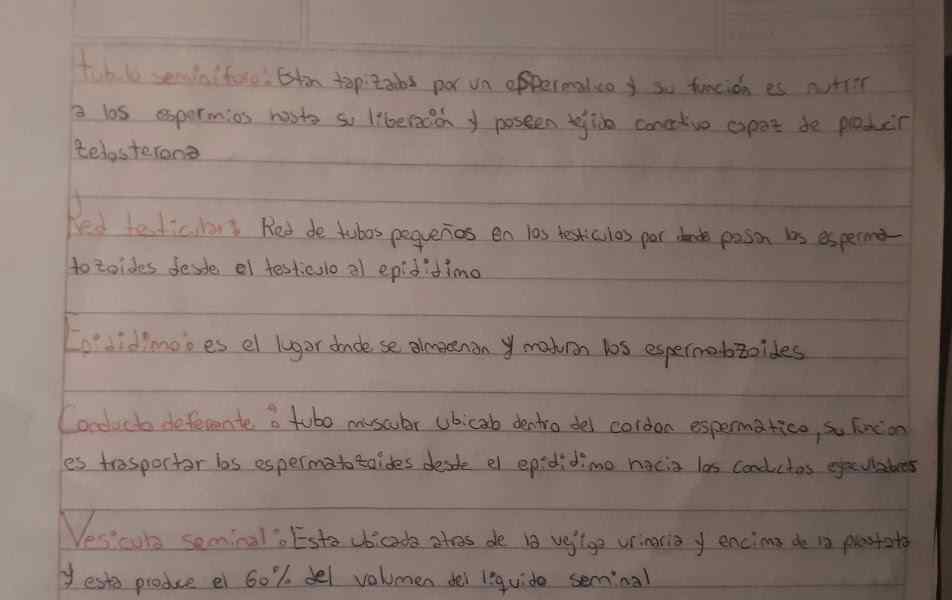 tubulo seminifero: Estan tapizados por un espermatico y su función es nutrir
a los espermios hasta su liberación y poseen tejido conectivo capaz de producir
telosterona
Red testicular: Red de tubos pequeños en los testiculos por donde pasan los esperma-
tozoides desde el testiculo al epididimo
Epididimo: es el lugar donde se almacenan y maduran los espermatozoides
Conducto deferente: tubo muscular ubicado dentro del cordon espermatico, su funcion
es trasportar los espermatotoides desde el epididimo hacia los conductos eyaculadores
Vesicula seminal: Esta ubicada atras de la vejiga urinaria y encima de la prostata
y esta produce el 60% del volumen del liquido seminal